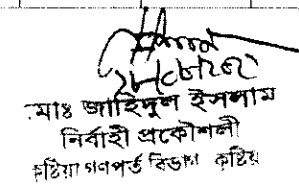 মোঃ জাহিদুল ইসলাম
নির্বাহী প্রকৌশলী
কুষ্টিয়া গণপূর্ত বিভাগ কুষ্টিয়া